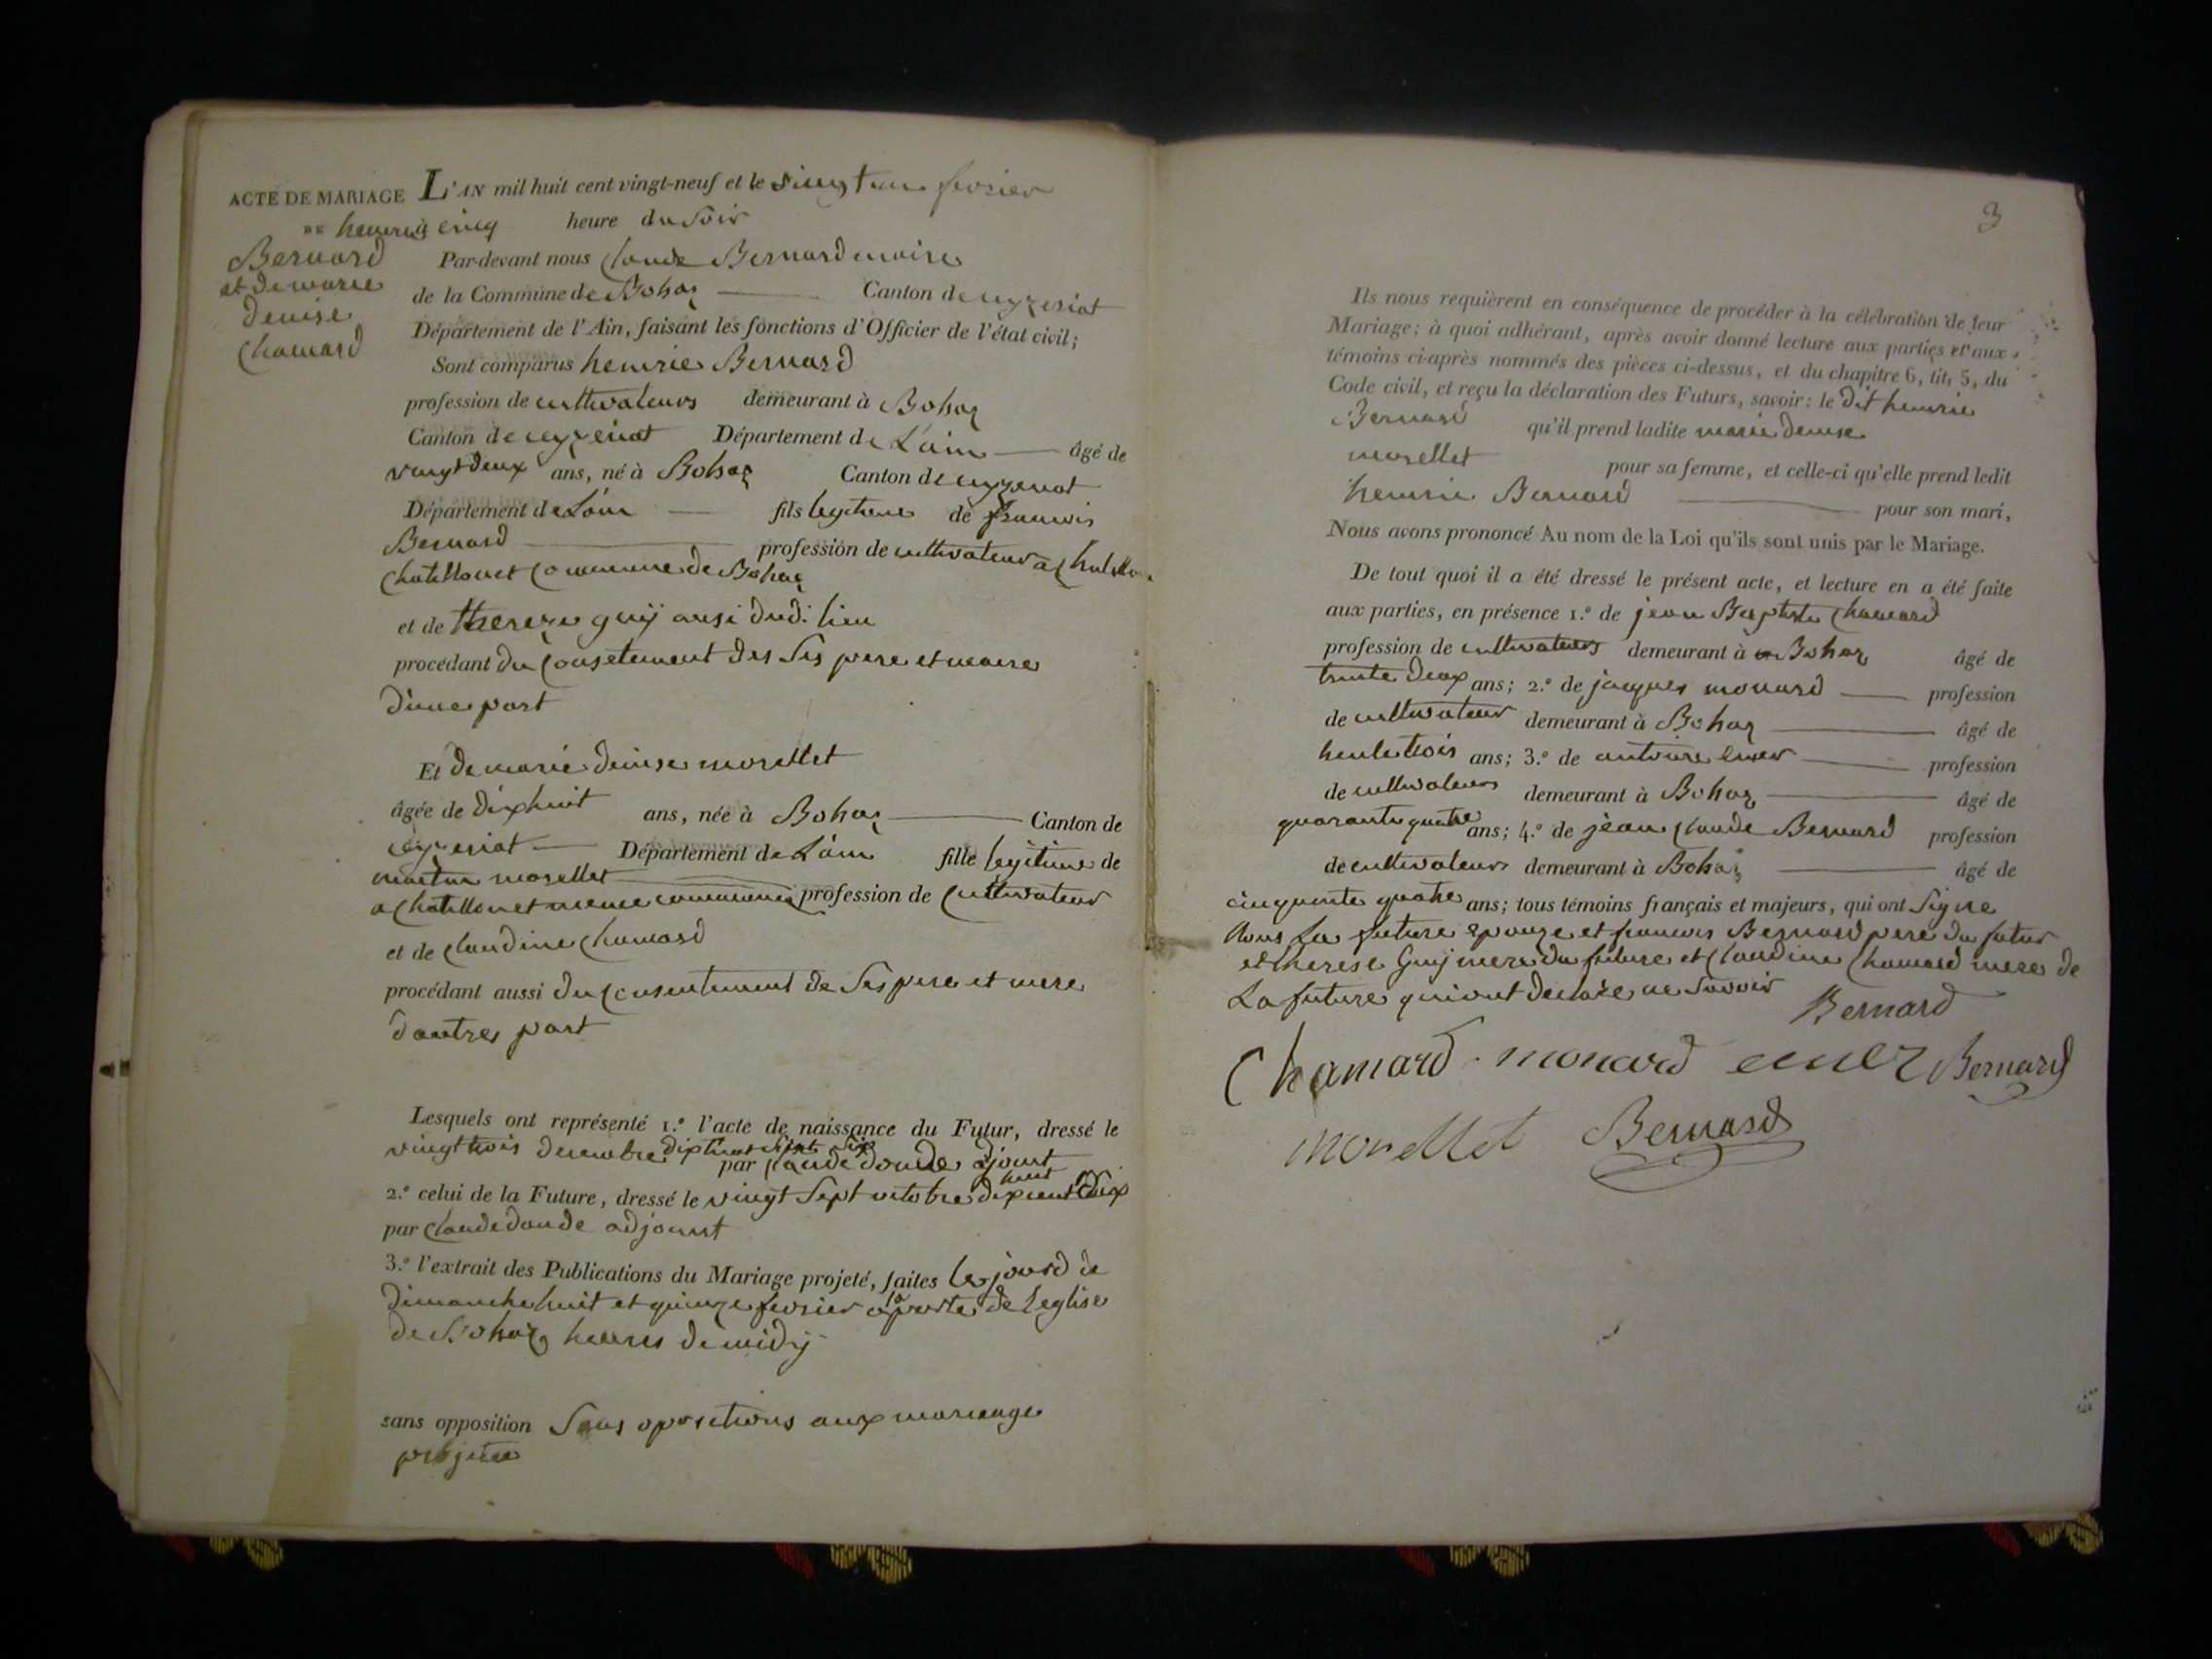 ACTE DE MARIAGE
DE henrie
Bernard
et de marie
denise
Chamard
L'AN mil huit cent vingt-neuf et le vingt un fevrier
à cinq heure du Soir
Par-devant nous Claude Bernard maire
de la Commune de Bohaz Canton de ceyzeriat
Département de l'Ain, faisant les fonctions d'Officier de l'état civil;
Sont comparus henrie Bernard
profession de cultivateurs demeurant à Bohaz
Canton de ceyzeriat Département de L'ain âgé de
vingt deux ans, né à Bohaz Canton de ceyzeriat
Département de L'ain fils legitime de francois
Bernard profession de cultivateur a Chatillon
Chatillonet Commune de Bohaz
et de thereze guij ausi dud. lieu
procédant du Consetement des Ses pere et maire
d'une part
Et de marie denise morellet
âgée de dixhuit ans, née à Bohaz Canton de
ceyzeriat Département de L'ain fille legitime de
morellet
a Chatillonet meme commune profession de Cultivateur
et de Claudine Chamard
procédant aussi du Consentement de Ses pere et mere
dautres part
Lesquels ont représenté 1.º l'acte de naissance du Futur, dressé le
vingt trois decembre dix huit cent Six
par Claude donde adjount
2.º celui de la Future, dressé le vingt Sept octobre dix huit cent dix
par Claude donde adjount
3.º l'extrait des Publications du Mariage projeté, faites les jourd de
dimanche huit et quinze fevrier a la porte de Leglise
de Bohaz heures de midij
sans opposition Sans opositions aux mariage
projetee
3
Ils nous requièrent en conséquence de procéder à la célébration de leur
Mariage; à quoi adhérant, après avoir donné lecture aux parties et aux
témoins ci-après nommés des pièces ci-dessus, et du chapitre 6, tit. 5, du
Code civil, et reçu la déclaration des Futurs, savoir: le dit henrie
Bernard qu'il prend ladite marie denise
morellet pour sa femme, et celle-ci qu'elle prend ledit
henrie Bernard pour son mari,
Nous avons prononcé Au nom de la Loi qu'ils sont unis par le Mariage.
De tout quoi il a été dressé le présent acte, et lecture en a été faite
aux parties, en présence 1.º de jean Baptiste Chamard
profession de cultivateurs demeurant à Bohaz âgé de
trente deux ans; 2.º de jacques monard profession
de cultivateur demeurant à Bohaz âgé de
trois ans; 3.º de antoine profession
de cultivateurs demeurant à Bohaz âgé de
quarante quatre ans; 4.º de jean Claude Bernard profession
de cultivateurs demeurant à Bohaz âgé de
cinquante quatre ans; tous témoins français et majeurs, qui ont Signe
La future epouze et francois Bernard pere du futur
et therese Guij mere du future et Claudine Chamard mere de
La future qui ont declare ne Savoir
Bernard
Chamard monard Bernard
morellet Bernard